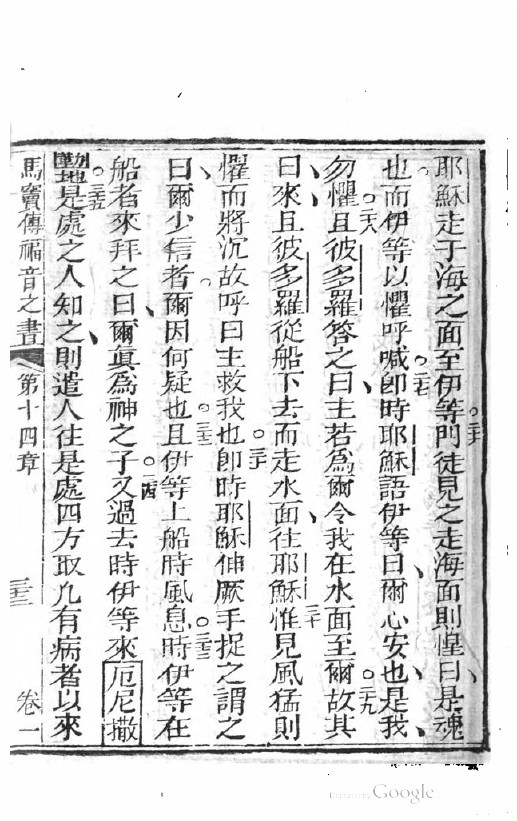 耶穌走于海之面至伊等門徒見之走海面則惶曰是魂
也而伊等以懼呼喊卽時耶穌語伊等曰爾心安也是我
勿懼且彼多羅答之曰主若為爾令我在水面至爾故其
曰來且彼多羅從船下去而走水面往耶穌惟見風猛則
懼而將沉故呼曰主救我也卽時耶穌伸厥手捉之謂之
曰爾少信者爾因何疑也且伊等上船時風息時伊等在
船者來拜之曰爾眞為神之子又過去時伊等來厄尼撒
是處之人知之則遣人往是處四方取凡有病者以來
馬竇傳福音之書 第十四章 三三 卷一
Digitized by Google